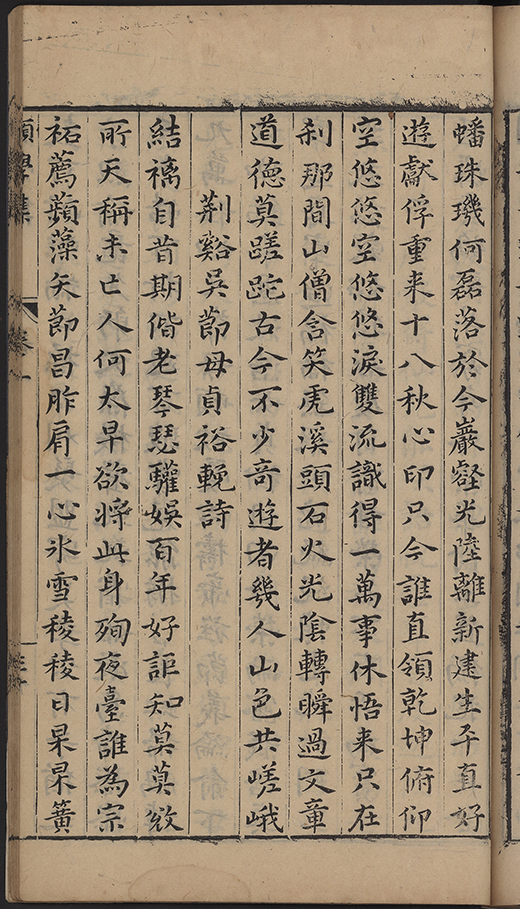 蟠珠璣何磊落於今巖壑光陸離新建生平直好
遊獻俘重来十八秋心印只今誰直領乾坤俯仰
空悠悠空悠悠淚雙流識得一萬事休悟来只在
刹那間山僧含笑虎溪頭石火光陰轉瞬過文章
道德莫蹉跎古今不少奇遊者幾人山色共嵯峨
荆谿吳節母貞裕輓詩
結褵自昔期偕老琴瑟驩娛百年好詎知莫莫殓
所天稱未亡人何太早欲將此身殉夜臺誰為宗
祏薦蘋藻矢節昌胙肩一心氷雪稜稜日杲杲簧
學集
卷一